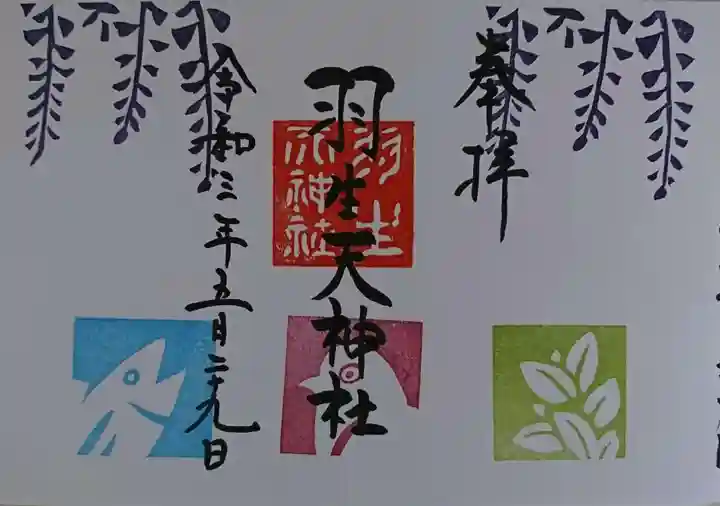 奉拝
羽生天神社
羽生
天神社
令和三年五月二十九日